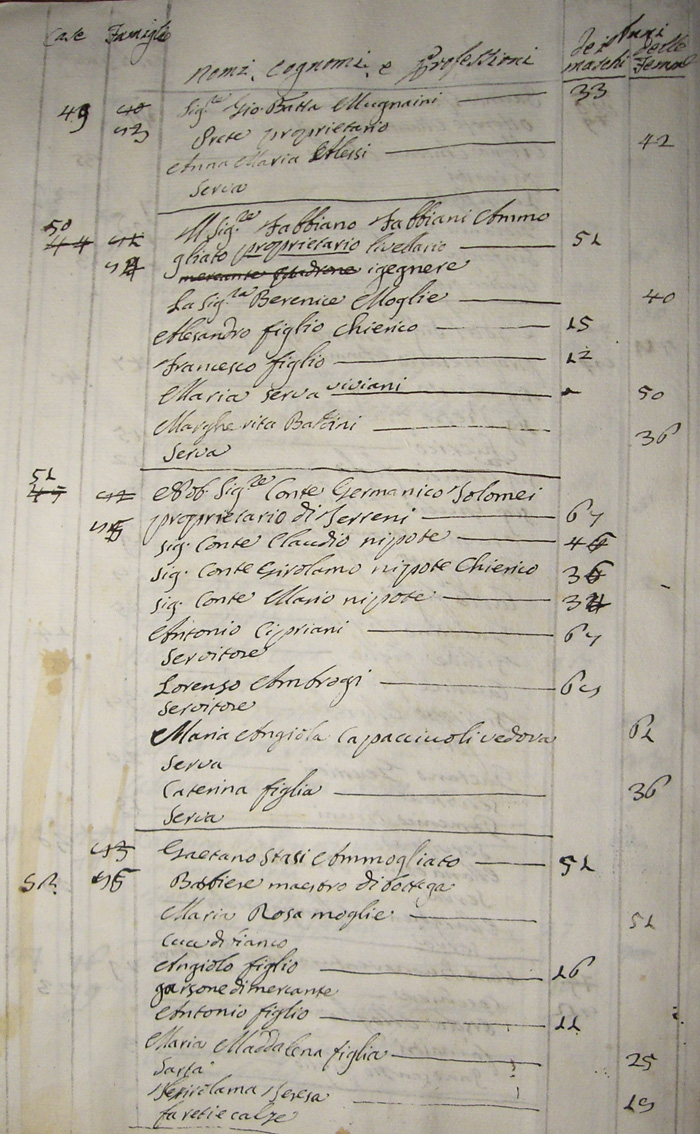 Case Famiglie Nomi, Cognomi, e Professioni dei maschi Anni delle Femmi
49 40 Sig.re Gio. Batta Mugnaini 33
43 Prete proprietario
Anna Maria Alessi 42
Serva
50 Il Sig.re Fabbiano Fabbiani Ammo
44 gliato proprietario livellario 51
mercante igegnere
La Sig.ra Berenice Moglie 40
Alesandro figlio Chierico 15
Francesco figlio 12
Maria serva viviani 50
Margherita Baldini 36
Serva
51 Nob. Sig.re Conte Germanico Tolomei
proprietario di Terreni 67
Sig. Conte Claudio nipote
Sig. Conte Girolamo nipote Chierico
Sig. Conte Mario nipote
Antonio Cipriani 67
Servitore
Lorenzo Ambrogi
Servitore
Maria Angiola Capacciuoli vedova 61
Serva
Caterina figlia 36
Serva
43 Gaetano Stasi Ammogliato 51
52 Barbiere maestro di bottega
Maria Rosa moglie 51
Cuce di bianco
Angiolo figlio 16
garsone di mercante
Antonio figlio 11
Maria Maddalena figlia 25
Sarta
Teresa 19
fa reti e calze